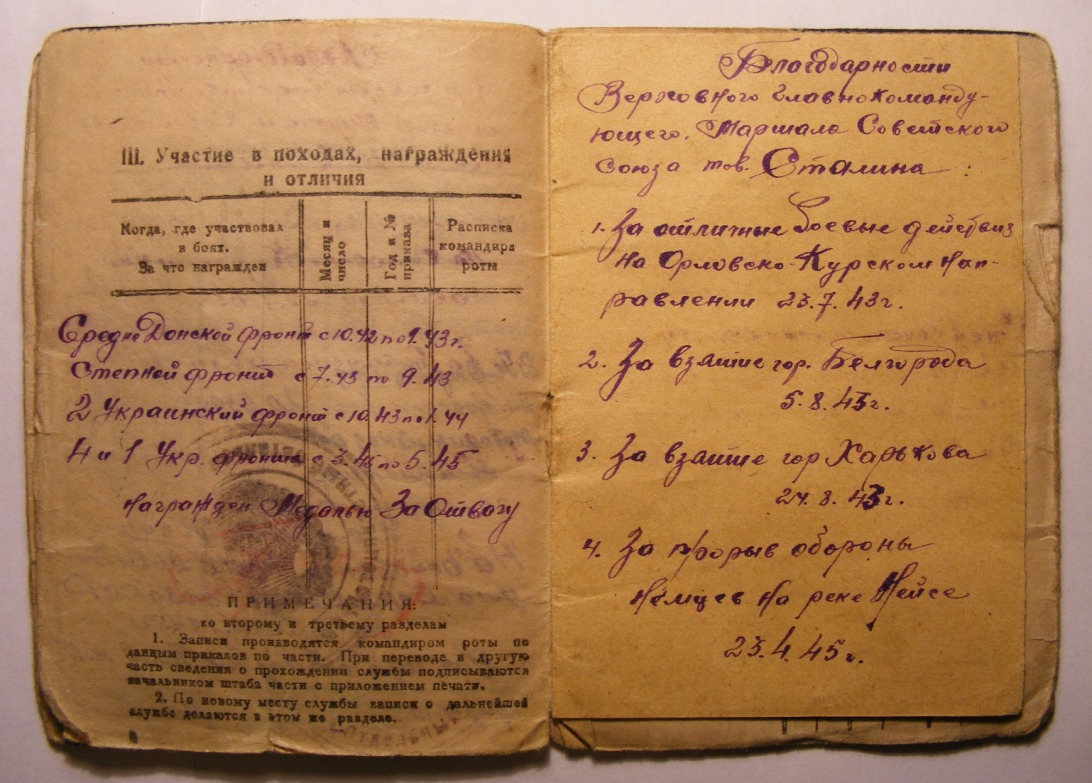 III. Участие в походах, награждения
и отличия
Когда, где участвовал
в боях.
За что награжден
Месяц и
число
Год и №
приказа
Расписка
командира
роты
Средне Донской фронт с 10.42 по 1.43 г.
Степной фронт с 7.43 по 9.43
2 Украинский фронт с 10.43 по 1.44
4 и 1 Укр. фронта с 3.45 по 5.45
Награжден Медалью За Отвагу
ПРИМЕЧАНИЯ:
ко второму и третьему разделам
1. Записи производятся командиром роты по
данным приказов по части. При переводе в другую
часть сведения о прохождении службы подписываются
начальником штаба части с приложением печати.
2. По новому месту службы записи о дальнейшей
службе делаются в этом же разделе.
Благодарности
Верховного Главнокоманду-
ющего, Маршала Советского
Союза тов. Сталина :
1. За отличные боевые действия
на Орловско-Курском нап-
равлении 23.7.43г.
2. За взятие гор. Белгорода
5.8.43г.
3. За взятие гор Харькова
24.8.43г.
4. За прорыв обороны
немцев на реке Нейсе
23.4.45г.